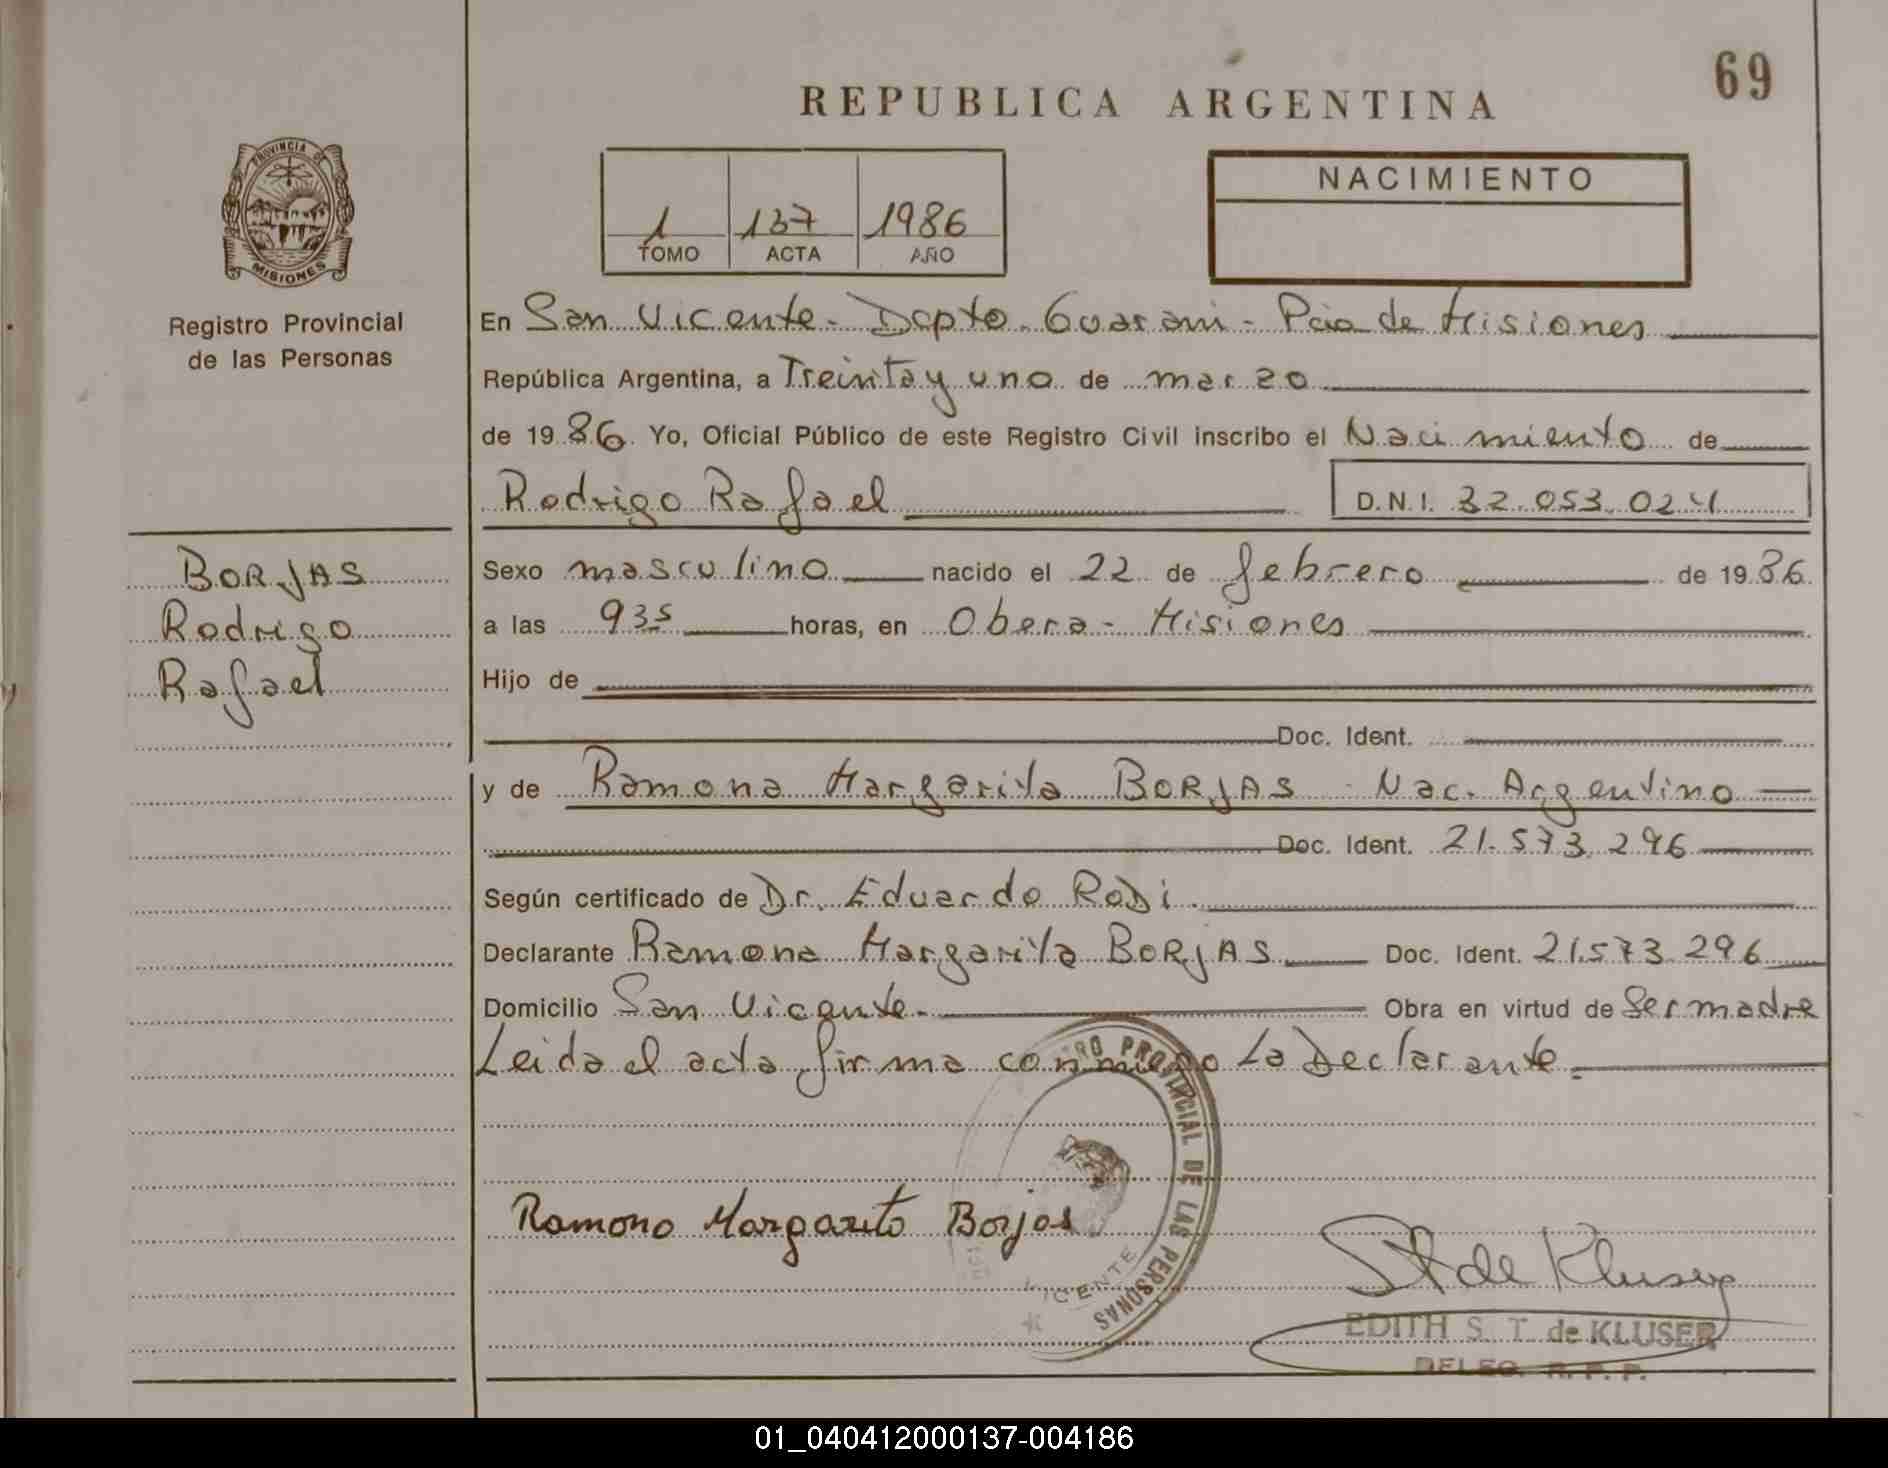 69
REPUBLICA ARGENTINA
PROVINCIA DE
MISIONES
Registro Provincial
de las Personas
1 137 1986
TOMO ACTA AÑO
NACIMIENTO
En San Vicente - Depto. Guarani - Pcia de Misiones
República Argentina, a Treinta y uno de marzo
de 1986. Yo, Oficial Público de este Registro Civil inscribo el Nacimiento de
Rodrigo Rafael D.N.I. 32.053.024
BORJAS
Rodrigo
Rafael
Sexo masculino nacido el 22 de febrero de 1986
a las 935 horas, en Obera - Misiones
Hijo de
Doc. Ident.
y de Ramona Margarita BORJAS Nac. Argentino
Doc. Ident. 21.573.296
Según certificado de Dr. Eduardo RoDi.
Declarante Ramona Margarita BORJAS Doc. Ident. 21.573.296
Domicilio San Vicente. Obra en virtud de Ser madre
Leida el acta firma conmigo La Declarante.
PROVINCIAL DE LAS PERSONAS
VICENTE
Ramona Margarita Borjas
de Kluser
EDITH S. T. de KLUSER
DELEG. R. P. P.
01_040412000137-004186